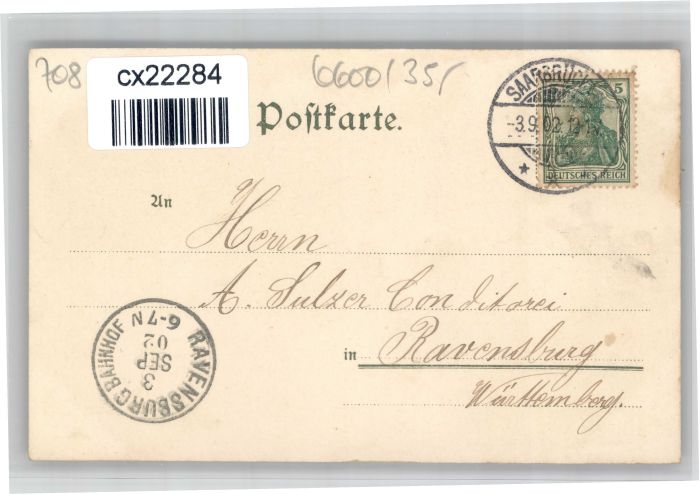 708
cx22284
6600/35,-
Postkarte.
SAARBRÜC
-3.9.02.12-1N
5
DEUTSCHES REICH
An
Herrn
A. Sulzer Conditorei
in Ravensburg
Württemberg.
RAVENSBURG BAHNHOF
3
SEP
02
N 6-7